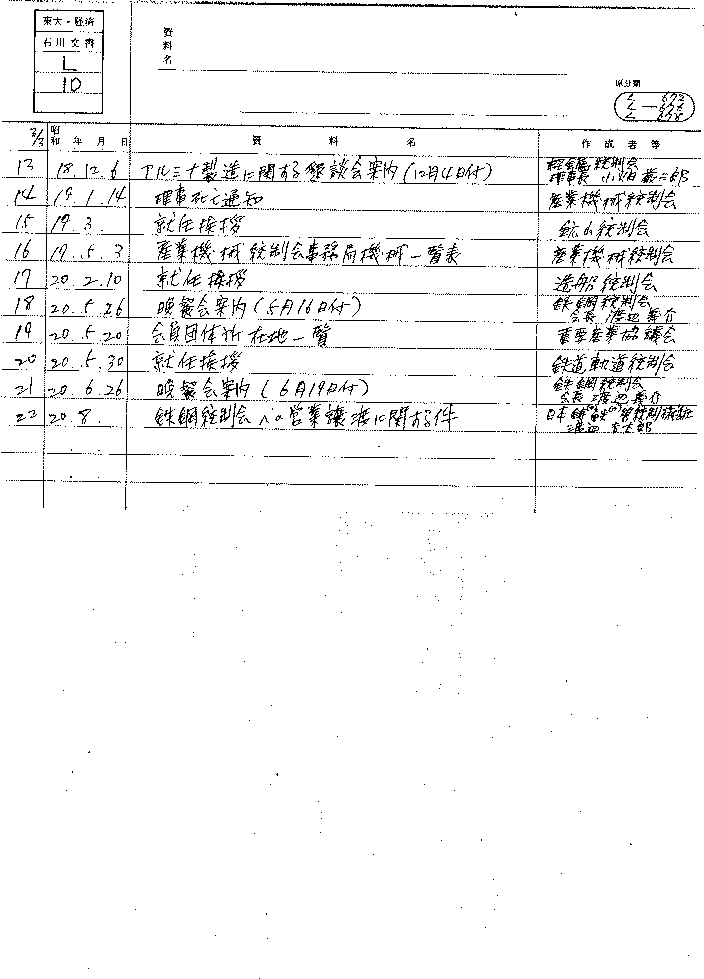 東大・経済
石川文書
L
10
資料名
原分類
L 672
L — 676
L 678
3/3 昭和 年 月 日 資 料 名 作 成 者 等
13 18.12.6 アルミナ製造に関する懇談会案内(12月4日付) 軽金属統制会
理事長
14 19.1.14 理事死亡通知 産業機械統制会
15 19.3. 就任挨拶 鉱山統制会
16 19.5.3 産業機械統制会事務局機械一覧表 産業機械統制会
17 20.2.10 就任挨拶 造船統制会
18 20.5.26 晩餐会案内(5月16日付) 鉄鋼統制会
会長 渡辺義介
19 20.5.20 会員団体所在地一覧 重要産業協議会
20 20.5.30 就任挨拶 鉄道軌道統制会
21 20.6.26 晩餐会案内(6月19日付) 鉄鋼統制会
会長 渡辺義介
22 20.8. 鉄鋼統制会への営業譲渡に関する件 日本鋳鉄管統制
渡辺